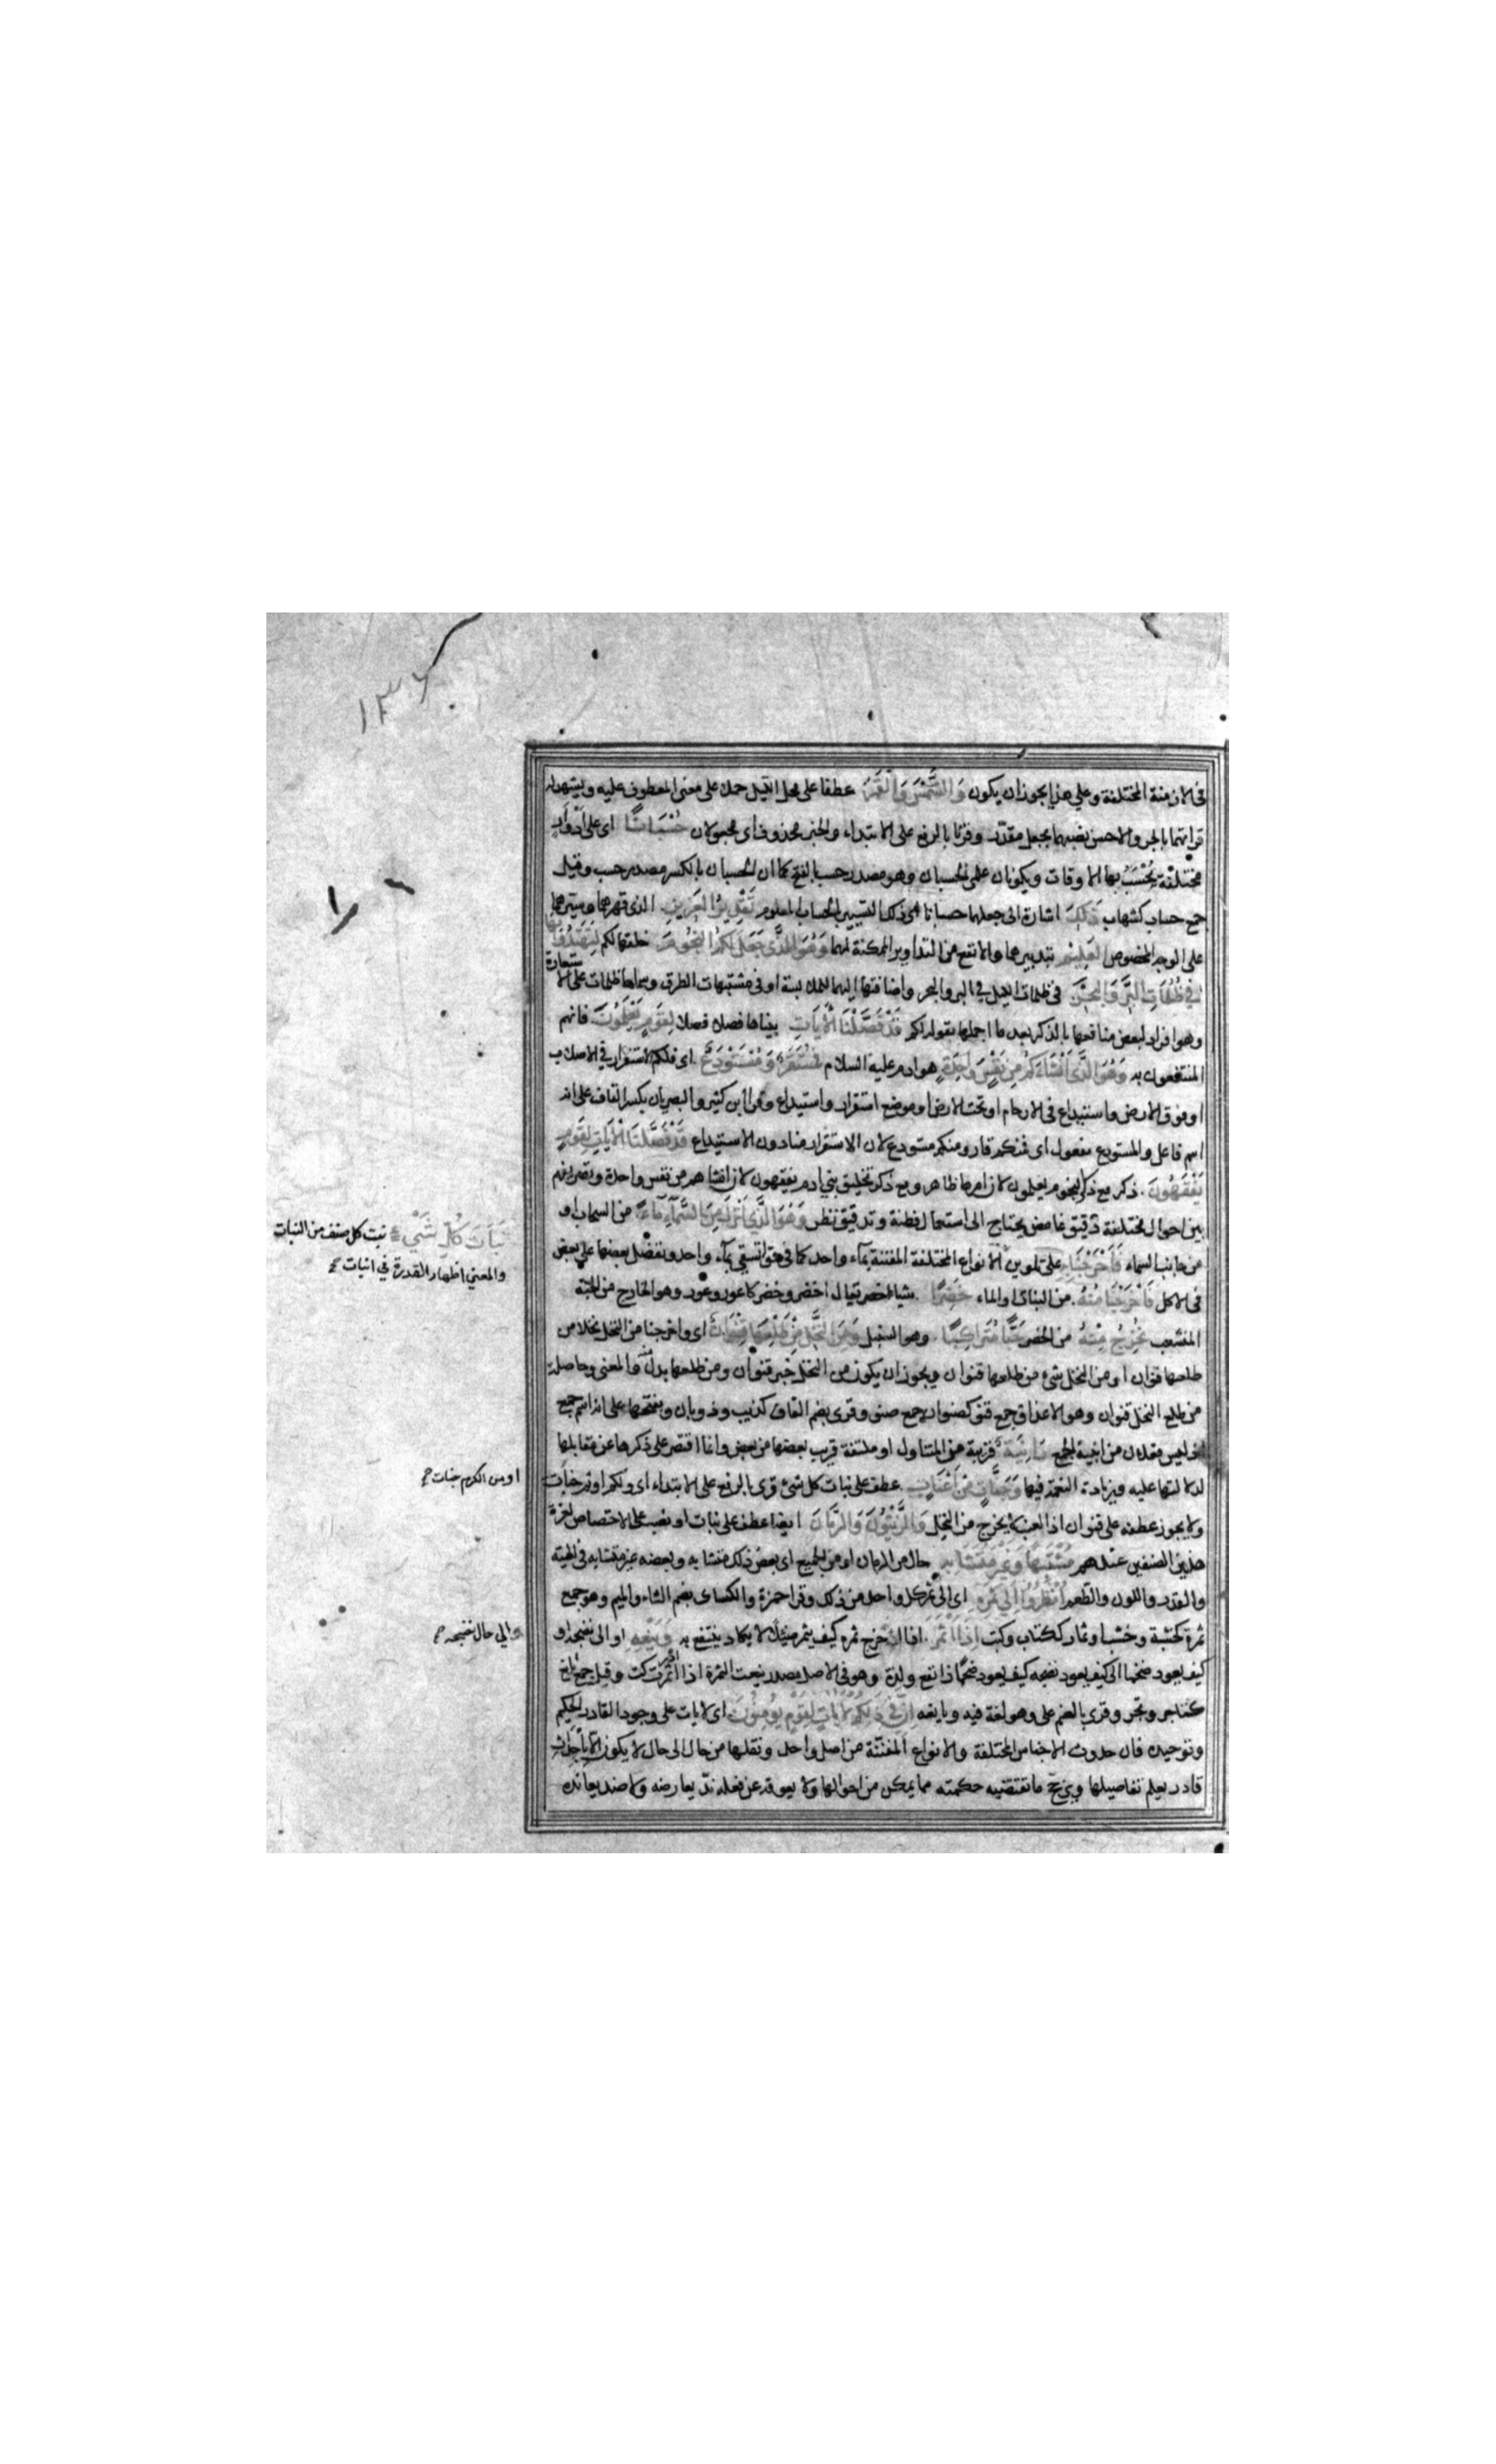 ١٣٦
فى الازمنة المختلفة وعلى هذا يجوز ان يكون وَالشَّمْسَ وَالْقَمَرَ عطفا على محل الليل حملا على معنى المعطوف عليه ويشهد له
قراءتهما بالجر والاحسن نصبهما بجعل مقدّر وقرئا بالرفع على الابتداء والخبر محذوف اى مجعولان حُسْبَانًا اى على أدوار
مختلفة يُحْسَبُ بها الاوقات ويكونان على الحسبان وهو مصدر حسب بالفتح كما ان الحسبان بالكسر مصدر حسب وقيل
جمع حساب كشهاب ذَلِكَ اشارة الى جعلهما حسبانا اى ذلك التسيير بالحساب المعلوم تَقْدِيرُ الْعَزِيزِ الذى قهرهما وسيرهما
على الوجه المخصوص الْعَلِيمِ بتدبيرهما والانفع من التداوير الممكنة لهما وَهُوَ الَّذِى جَعَلَ لَكُمُ النُّجُومَ خلقها لكم لِتَهْتَدُوا بِهَا
فِى ظُلُمَاتِ الْبَرِّ وَالْبَحْرِ فى ظلمات الليل فى البر والبحر واضافتها اليهما للملابسة او فى مشتبهات الطرق وسماها ظلمات على الاستعارة
وهو افراد لبعض منافعها بالذكر بعد ما اجملها بقوله لكم قَدْ فَصَّلْنَا الْآيَاتِ بيناها فصلا فصلا لِقَوْمٍ يَعْلَمُونَ فانهم
المنتفعون به وَهُوَ الَّذِى أَنْشَأَكُمْ مِنْ نَفْسٍ وَاحِدَةٍ هو ادم عليه السلام فَمُسْتَقَرٌّ وَمُسْتَوْدَعٌ اى فلكم استقرار فى الاصلاب
او فوق الارض واستيداع فى الارحام او تحت الارض او موضع استقرار واستيداع وقرا ابن كثير والبصريان بكسر القاف على انه
اسم فاعل والمستودع مفعول اى فمنكم قار ومنكم مستودع لان الاستقرار منا دون الاستيداع قَدْ فَصَّلْنَا الْآيَاتِ لِقَوْمٍ
يَفْقَهُونَ ذكر مع ذكر النجوم يعلمون لان امرها ظاهر ومع ذكر تخليق بنى ادم يفقهون لان انشاهم من نفس واحدة وتصريفهم
بين احوال مختلفة دقيق غامض يحتاج الى استعمال فطنة وتدقيق نظر وَهُوَ الَّذِى أَنْزَلَ مِنَ السَّمَاءِ مَاءً من السحاب او
من جانب السماء فَأَخْرَجْنَا على تلوين الانواع المختلفة المفننة بماء واحد كما فى قوله تسقى بماء واحد ونفضل بعضها على بعض
فى الاكل فَأَخْرَجْنَا مِنْهُ من النبات او الماء خَضِرًا شيا اخضر يقال اخضر وخضر كاعور وعور وهو الخارج من الحبة
المتشعب نُخْرِجُ مِنْهُ من الخضر حَبًّا مُتَرَاكِبًا وهو السنبل وَمِنَ النَّخْلِ مِنْ طَلْعِهَا قِنْوَانٌ اى واخرجنا من النخل نخلا من
طلعها قنوان او من النخل شئ من طلعها قنوان ويجوز ان يكون من النخل خبر قنوان ومن طلعها بدل منه والمعنى وحاصلة
من طلع النخل قنوان وهو الاعذاق جمع قنو كصنوان جمع صنو وقرئ بضم القاف كذئب وذوبان وبفتحها على انه اسم جمع
اذ ليس فعلان من ابنية الجمع دَانِيَةٌ قريبة من المتناول او ملتفة قريب بعضها من بعض وانما اقتصر على ذكرها عن مقابلها
لدلالتها عليه وزيادة النعمة فيها وَجَنَّاتٍ مِنْ أَعْنَابٍ عطف على نبات كل شئ وقرئ بالرفع على الابتداء اى ولكم او ثم جنات
ولا يجوز عطفه على قنوان اذ العنب لا يخرج من النخل وَالزَّيْتُونَ وَالرُّمَّانَ ايضا عطف على نبات او نصب على الاختصاص لعزة
هذين الصنفين عندهم مُشْتَبِهًا وَغَيْرَ مُتَشَابِهٍ حال من الرمان او من الجميع اى بعض ذلك متشابه وبعضه غير متشابه فى الهيئة
والقدر واللون والطعم انْظُرُوا إِلَى ثَمَرِهِ اى الى ثمر كل واحد من ذلك وقرا حمزة والكسائ بضم الثاء والميم وهو جمع
ثمرة كخشبة وخشب او ثمار ككتاب وكتب إِذَا أَثْمَرَ اذا اخرج ثمره كيف يثمر ضئيلا لا يكاد ينتفع به وَيَنْعِهِ او الى نضجه او
كيف يعود ضخما الى كيف يعود نضيجه كيف يعود ضخما ذا نفع ولذة وهو فى الاصل مصدر ينعت الثمرة اذا ادركت وقيل جمع يانع
كتاجر وتجر وقرئ بالضم وهو لغة فيه ويانعه إِنَّ فِى ذَلِكُمْ لَآيَاتٍ لِقَوْمٍ يُؤْمِنُونَ اى لايات على وجود القادر الحكيم
وتوحيده فان حدوث الاجناس المختلفة والانواع المفننة من اصل واحد ونقلها من حال الى حال لا يكون الا باحداث
قادر يعلم تفاصيلها ويرجح ما تقتضيه حكمته مما يمكن من احوالها ولا يعوقه عن فعله ندّ يعارضه ولا ضد يعانده
نَبَاتَ كُلِّ شَىْءٍ نبت كل صنف من النبات
والمعنى اظهار القدرة فى انبات
او من الكرم جنات
والى حال نضجه